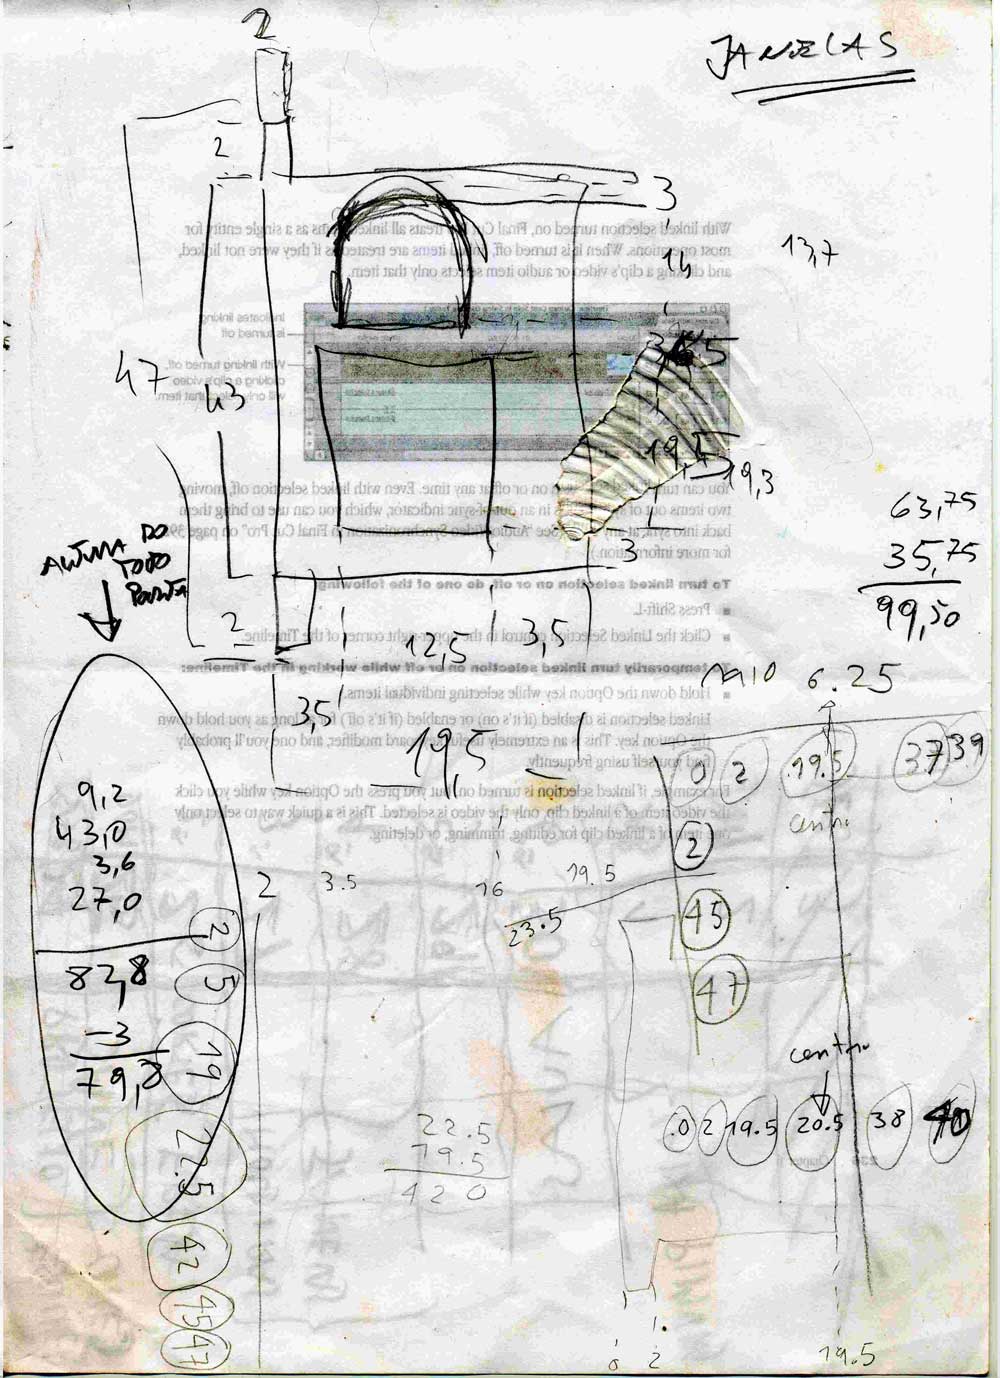 2
JANELAS
2
3
14
13,7
47
43
3,5
19,5
19,3
63,75
35,75
99,50
3
ALTURA DO
TODO
2
12,5
3,5
RAIO 6.25
3,5
19,5
0 2 19.5 37 39
centro
9,2
43,0
3,6
27,0
82,8
-3
79,8
2
3.5
16
19.5
23.5
2
45
47
2
5
19
22.5
42
45
47
centro
.0 2 19.5 20.5 38 40
22.5
19.5
42 0
0 2 19.5
With linked selection turned on, Final Cut Pro treats all linked items as a single entity for
most operations. When it is turned off, linked items are treated as if they were not linked,
and clicking a clip's video or audio item selects only that item.
Indicates linking
is turned off
With linking turned off,
clicking a clip's video
will only select that item.
You can turn linked selection on or off at any time. Even with linked selection off, moving
two items out of sync results in an out-of-sync indicator, which you can use to bring them
back into sync at any time. See "Audio/Video Synchronization in Final Cut Pro" on page 39
for more information.)
To turn linked selection on or off, do one of the following:
■ Press Shift-L.
■ Click the Linked Selection control in the upper-right corner of the Timeline.
To temporarily turn linked selection on or off while working in the Timeline:
■ Hold down the Option key while selecting individual items.
Linked selection is disabled (if it's on) or enabled (if it's off) for as long as you hold down
the Option key. This is an extremely useful keyboard modifier, and one you'll probably
find yourself using frequently.
For example, if linked selection is turned on but you press the Option key while you click
the video item of a linked clip, only the video is selected. This is a quick way to select only
one item of a linked clip for editing, trimming, or deleting.
Chapter